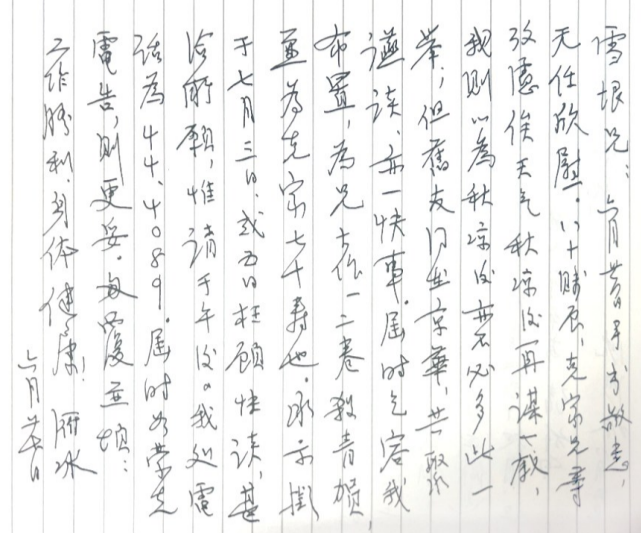 雪垠兄：六月廿日手书敬悉，
无任欣慰。八十贱辰，克家兄等
攷虑俟天气秋凉后再谋一叙，
我则以为秋凉后亦不必多此一
举；但舊友同在京華，共聚
讌谈，亦一快事。届时乞容我
布置，为兄大作一二卷殺青賀，
並为克家七十寿也。承示拟
于七月三日，或五日枉顾快谈，甚
洽所願，惟请于午后。我处電
话为44.4089。届时如蒙先
電告，则更妥。匆覆並頌：
工作勝利，身体健康！ 雁冰
六月廿日